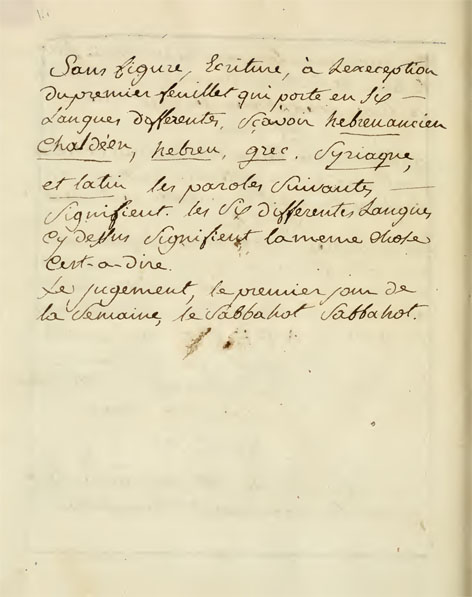 Sans figure, Ecriture, à Lexception
du premier feuillet qui porte en six
Langues differentes, Sçavoir hebreu ancien
Chaldéen, hebreu, grec, Syriaque,
et latin les paroles Suivantes
Signifient. les Six differentes Langues
Cy dessus Signifient la meme Chose
Cest-a-dire.
Le jugement, le premier jour de
la Semaine, le Sabbahot Sabbahot.